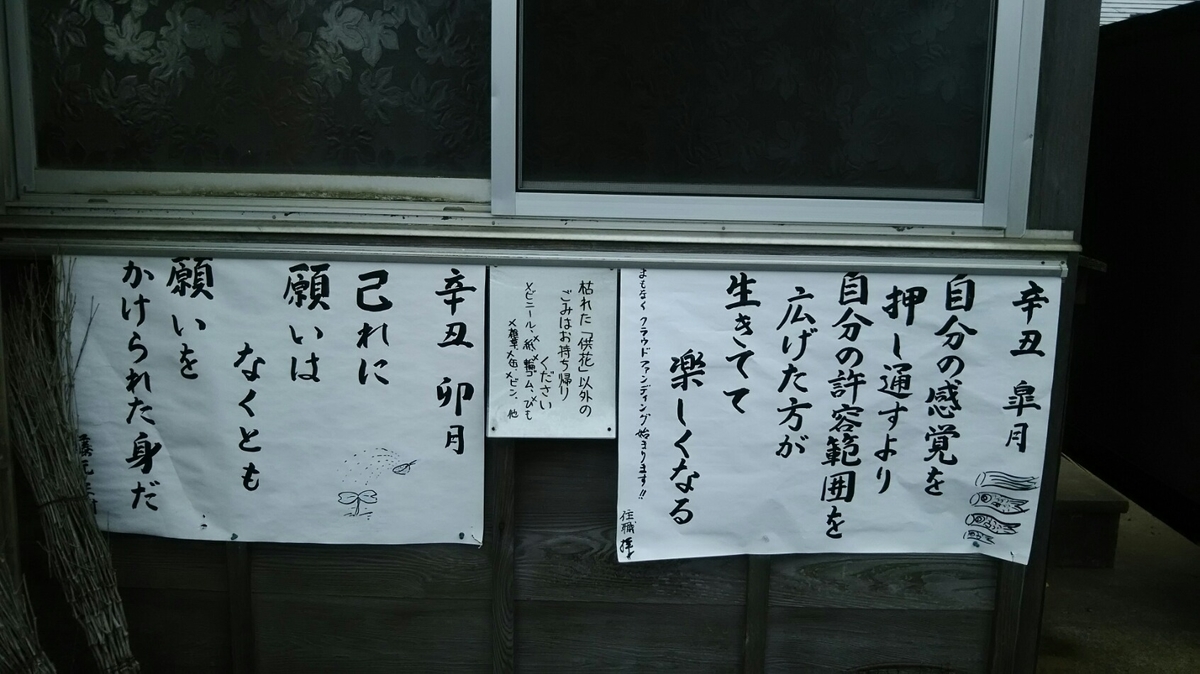 辛丑 皐月
自分の感覚を
押し通すより
自分の許容範囲を
広げた方が
生きてて
楽しくなる
まもなく クラウドファンディング始まります!!
住職 拝
枯れた「供花」以外の
ごみはお持ち帰り
ください
×ビニール、×紙、×輪ゴム、×ひも
×雑草、×缶、×ビン、他
辛丑 卯月
己れに
願いは
なくとも
願いを
かけられた身だ